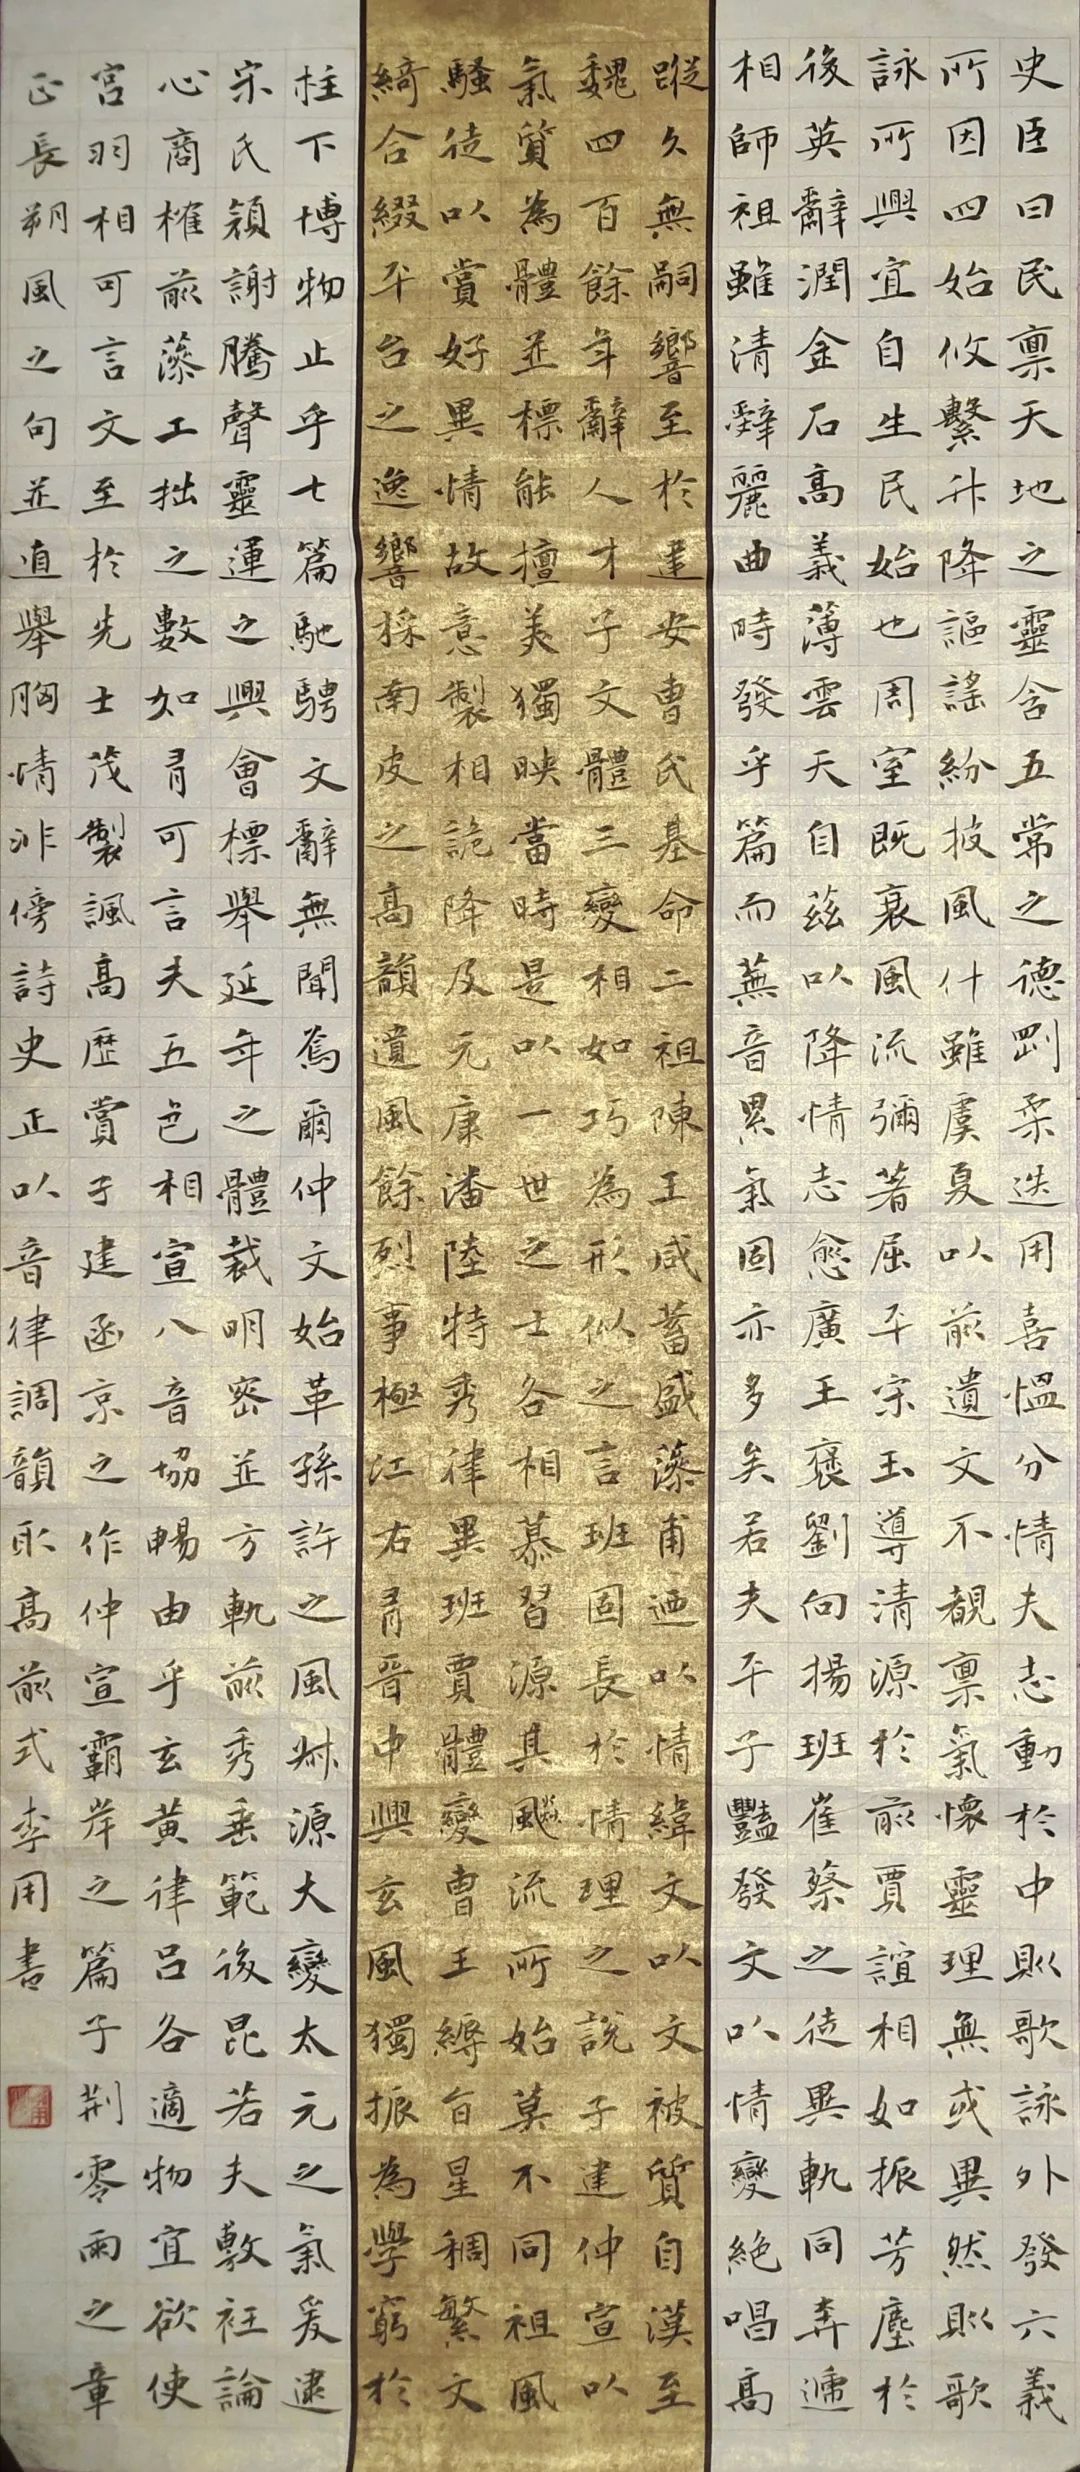 史臣曰民禀天地之靈含五常之德剛柔迭用喜慍分情夫志動於中則歌詠外發六義
所因四始攸繫升降謳謠紛披風什雖虞夏以前遺文不覩禀氣懷靈理無或異然則歌
詠所興宜自生民始也周室既衰風流彌著屈平宋玉導清源於前賈誼相如振芳塵於
後英辭潤金石高義薄雲天自茲以降情志愈廣王褒劉向揚班崔蔡之徒異軌同奔遞
相師祖雖清辭麗曲時發乎篇而蕪音累氣固亦多矣若夫平子豔發文以情變絕唱高
蹤久無嗣響至於建安曹氏基命二祖陳王咸蓄盛藻甫迺以情緯文以文被質自漢至
魏四百餘年辭人才子文體三變相如巧為形似之言班固長於情理之說子建仲宣以
氣質為體並標能擅美獨映當時是以一世之士各相慕習源其飈流所始莫不同祖風
騷徒以賞好異情故意製相詭降及元康潘陸特秀律異班賈體變曹王縟旨星稠繁文
綺合綴平台之逸響採南皮之高韻遺風餘烈事極江右有晉中興玄風獨振為學窮於
柱下博物止乎七篇馳騁文辭無聞焉爾仲文始革孫許之風叔源大變太元之氣爰逮
宋氏顏謝騰聲靈運之興會標舉延年之體裁明密並方軌前秀垂範後昆若夫敷衽論
心商榷前藻工拙之數如有可言夫五色相宣八音協暢由乎玄黃律呂各適物宜欲使
宮羽相可言文至於先士茂製諷高歷賞子建函京之作仲宣霸岸之篇子荊零雨之章
正長朔風之句並直舉胸情非傍詩史正以音律調韻取高前式李用書